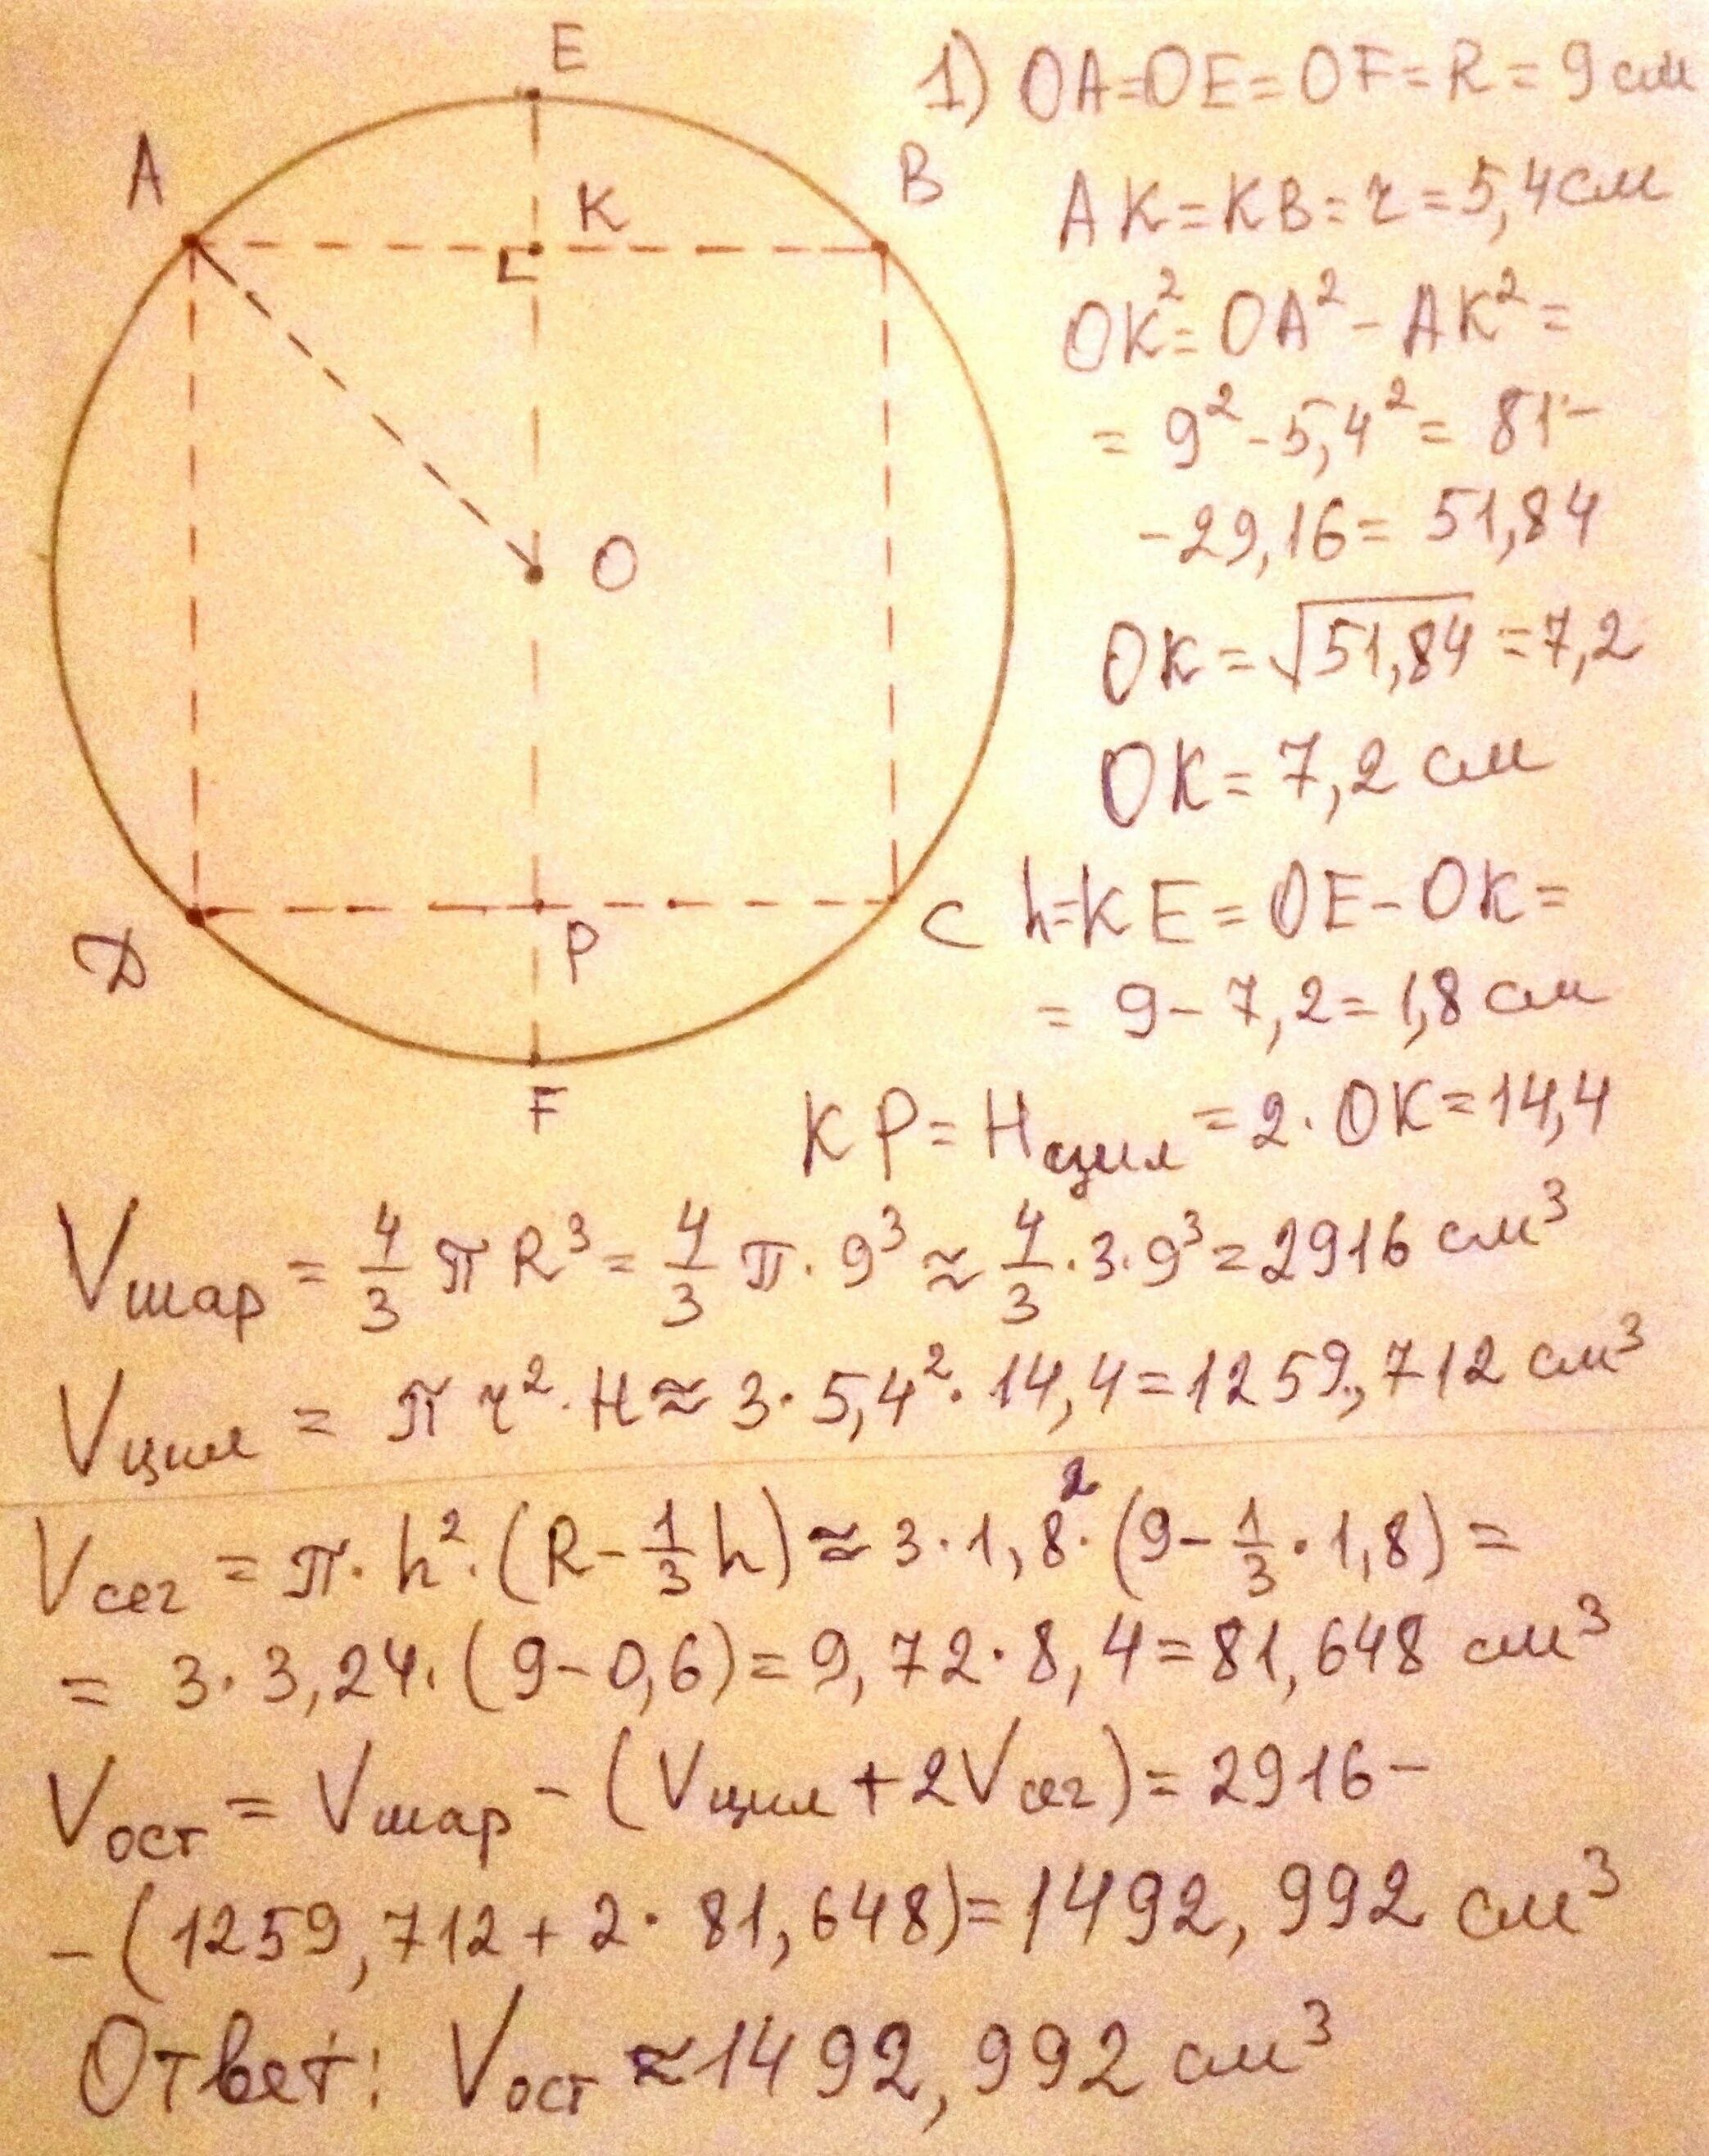 E
A
K
B
O
D
P
C
F
1) OA=OE=OF=R=9 см
AK=KB=r=5,4 см
OK²=OA²-AK²=
=9²-5,4²=81-
-29,16=51,84
OK=√51,84=7,2
OK=7,2 см
h=KE=OE-OK=
=9-7,2=1,8 см
KP=Hцил=2·OK=14,4
Vшар=4/3πR³=4/3π·9³≈4/3·3·9³=2916 см³
Vцил=πr²·H≈3·5,4²·14,4=1259,712 см³
Vсег=π·h²·(R-1/3h)≈3·1,8²·(9-1/3·1,8)=
=3·3,24·(9-0,6)=9,72·8,4=81,648 см³
Vост=Vшар-(Vцил+2Vсег)=2916-
-(1259,712+2·81,648)=1492,992 см³
Ответ: Vост≈1492,992 см³